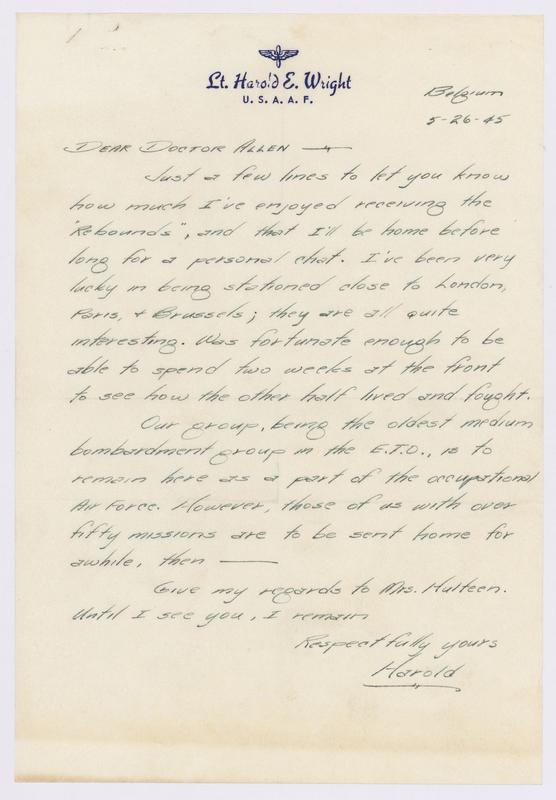 Lt. Harold E. Wright
U. S. A. A. F.
Belgium
5-26-45
DEAR DOCTOR ALLEN —
Just a few lines to let you know
how much I've enjoyed receiving the
"Rebounds", and that I'll be home before
long for a personal chat. I've been very
lucky in being stationed close to London,
Paris, & Brussels; they are all quite
interesting. Was fortunate enough to be
able to spend two weeks at the front
to see how the other half lived and fought.
Our group, being the oldest medium
bombardment group in the E.T.O., is to
remain here as a part of the occupational
Air Force. However, those of us with over
fifty missions are to be sent home for
awhile, then ——
Give my regards to Mrs. Hulteen.
Until I see you, I remain
Respectfully yours
Harold